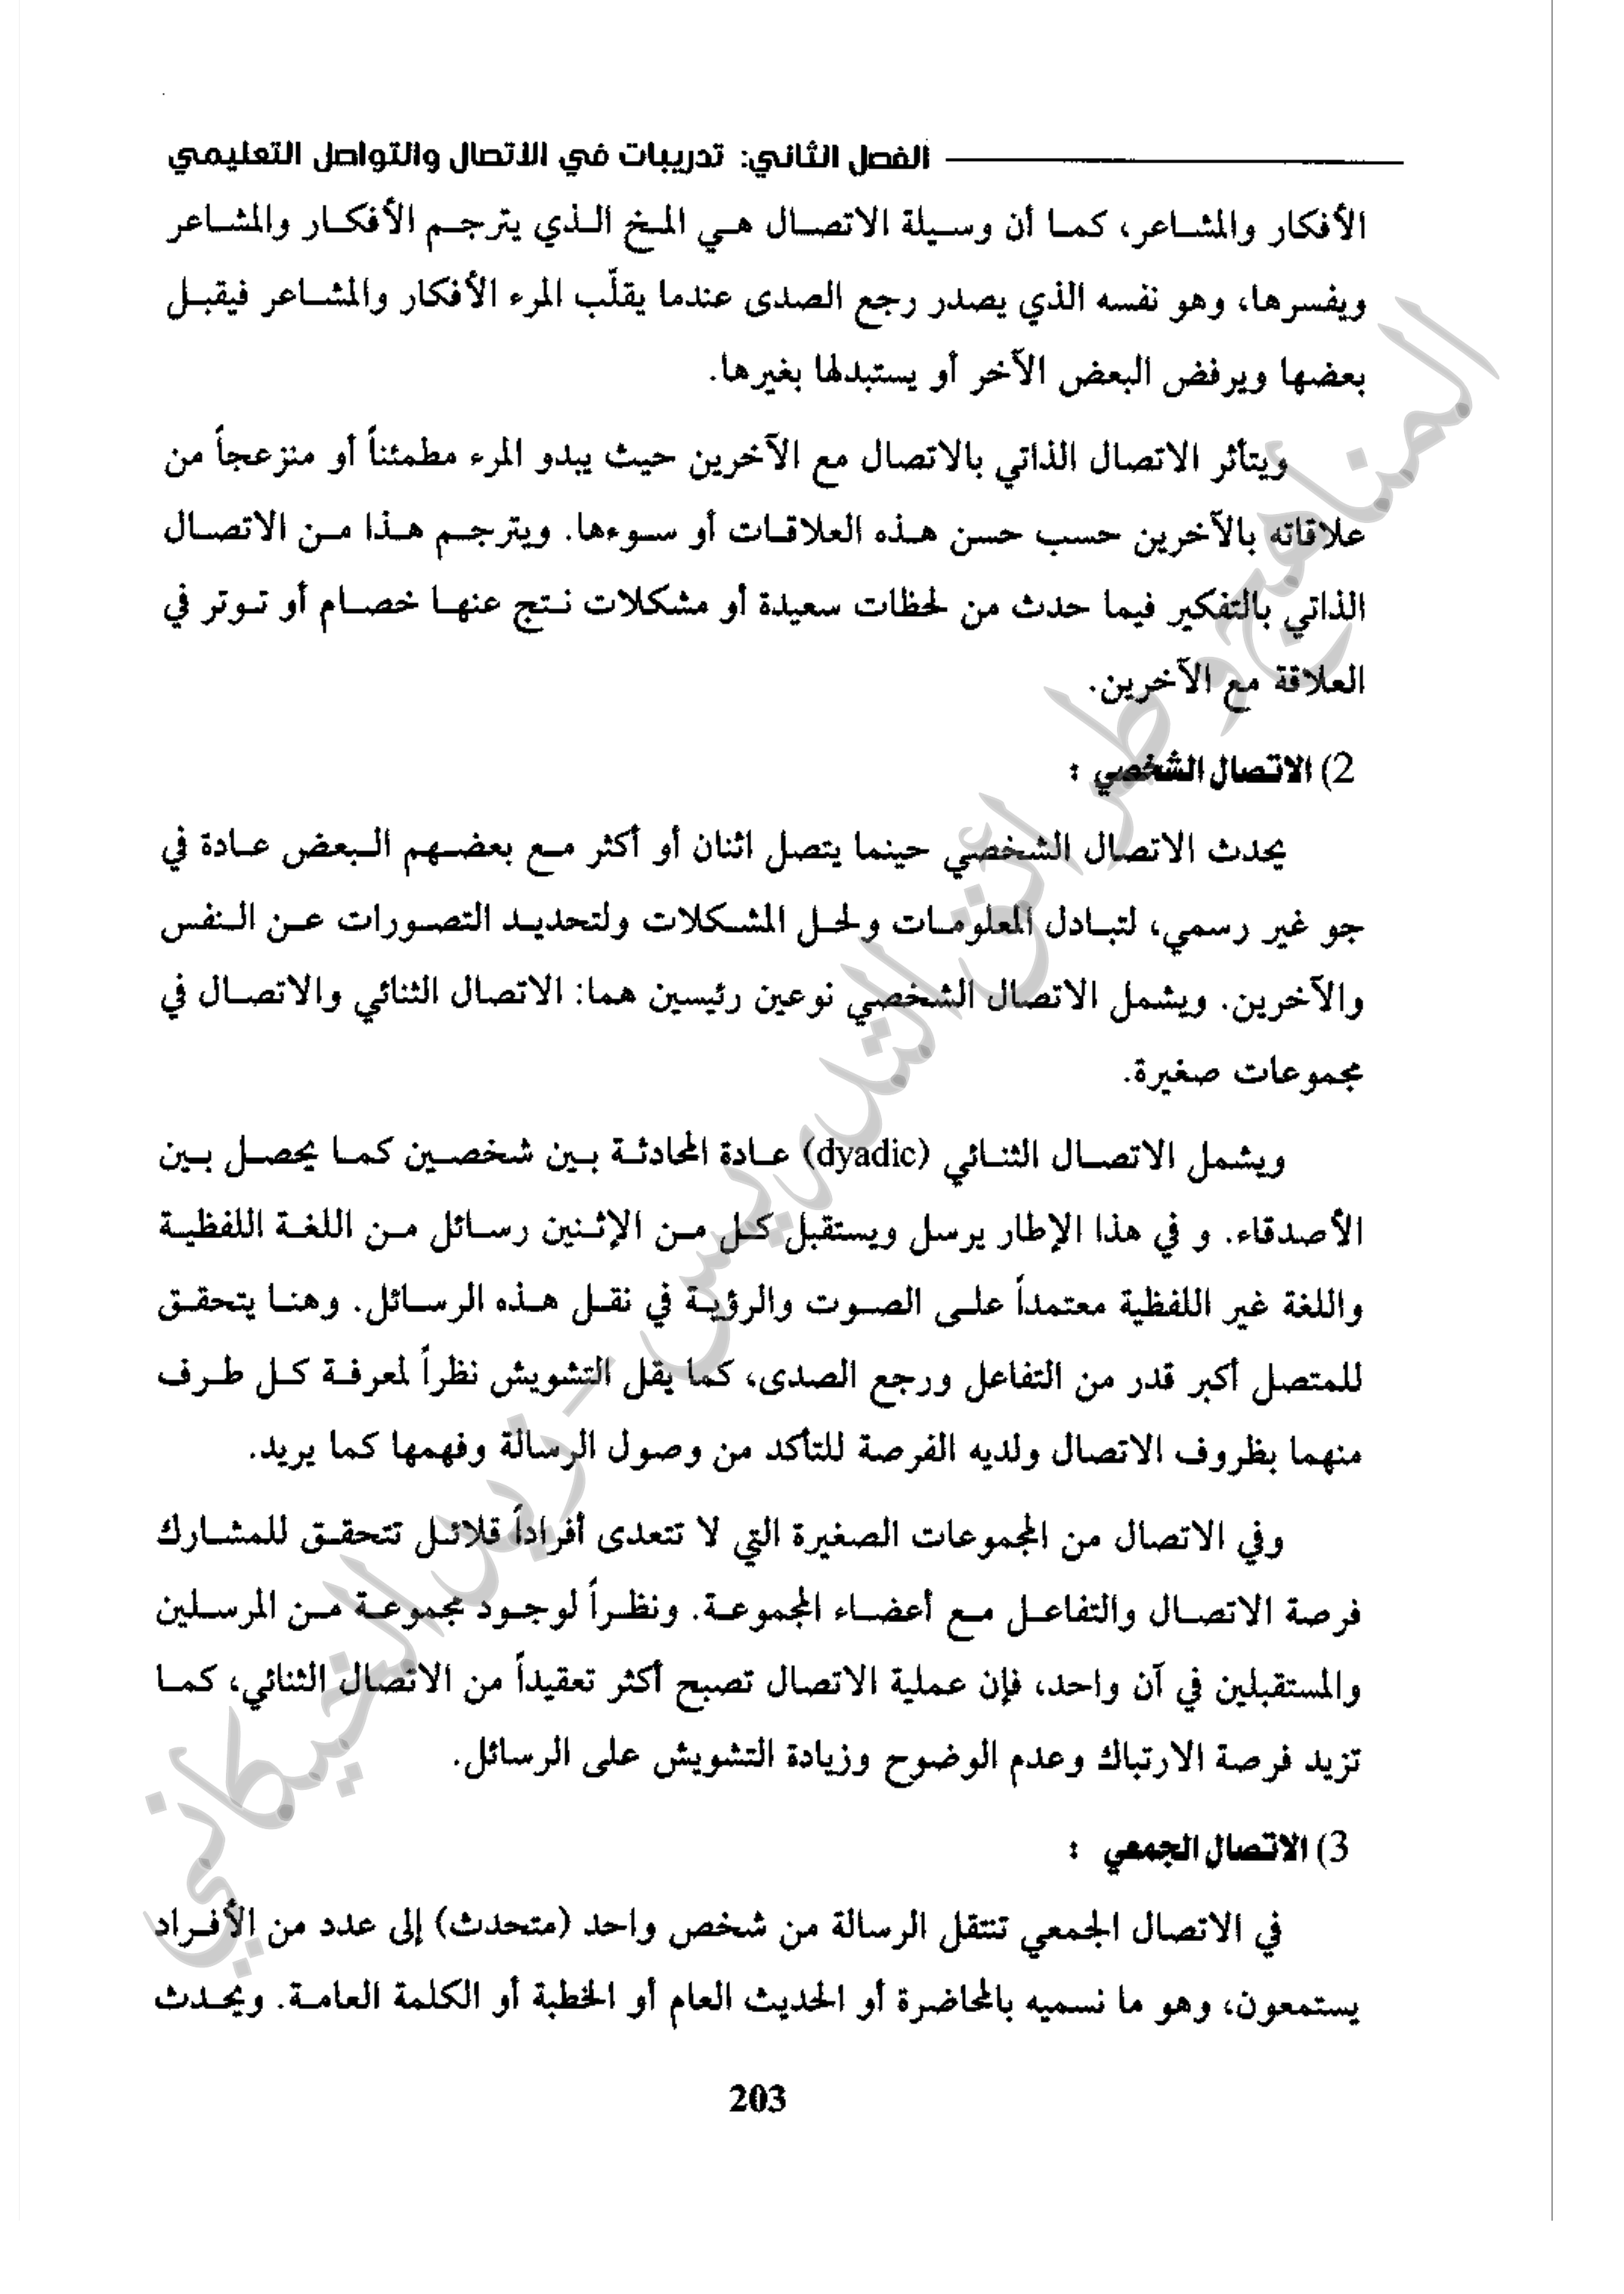 الفصل الثاني: تدريبات في الاتصال والتواصل التعليمي
الأفكار والمشاعر، كما أن وسيلة الاتصال هي المخ الذي يترجم الأفكار والمشاعر
ويفسرها، وهو نفسه الذي يصدر رجع الصدى عندما يقلّب المرء الأفكار والمشاعر فيقبل
بعضها ويرفض البعض الآخر أو يستبدلها بغيرها.
ويتأثر الاتصال الذاتي بالاتصال مع الآخرين حيث يبدو المرء مطمئناً أو منزعجاً من
علاقاته بالآخرين حسب حسن هذه العلاقات أو سوءها. ويترجم هذا من الاتصال
الذاتي بالتفكير فيما حدث من لحظات سعيدة أو مشكلات نتج عنها خصام أو توتر في
العلاقة مع الآخرين.
2) الاتصال الشخصي :
يحدث الاتصال الشخصي حينما يتصل اثنان أو أكثر مع بعضهم البعض عادة في
جو غير رسمي، لتبادل المعلومات ولحل المشكلات ولتحديد التصورات عن النفس
والآخرين. ويشمل الاتصال الشخصي نوعين رئيسين هما: الاتصال الثنائي والاتصال في
مجموعات صغيرة.
ويشمل الاتصال الثنائي (dyadic) عادة المحادثة بين شخصين كما يحصل بين
الأصدقاء. و في هذا الإطار يرسل ويستقبل كل من الإثنين رسائل من اللغة اللفظية
واللغة غير اللفظية معتمداً على الصوت والرؤية في نقل هذه الرسائل. وهنا يتحقق
للمتصل أكبر قدر من التفاعل ورجع الصدى، كما يقل التشويش نظراً لمعرفة كل طرف
منهما بظروف الاتصال ولديه الفرصة للتأكد من وصول الرسالة وفهمها كما يريد.
وفي الاتصال من المجموعات الصغيرة التي لا تتعدى أفراداً قلائل تتحقق للمشارك
فرصة الاتصال والتفاعل مع أعضاء المجموعة. ونظراً لوجود مجموعة من المرسلين
والمستقبلين في آن واحد، فإن عملية الاتصال تصبح أكثر تعقيداً من الاتصال الثنائي، كما
تزيد فرصة الارتباك وعدم الوضوح وزيادة التشويش على الرسائل.
3) الاتصال الجمعي :
في الاتصال الجمعي تنتقل الرسالة من شخص واحد (متحدث) إلى عدد من الأفراد
يستمعون، وهو ما نسميه بالمحاضرة أو الحديث العام أو الخطبة أو الكلمة العامة. ويحدث
203
المناهج وطرائق التدريس - زيد الخيكاني